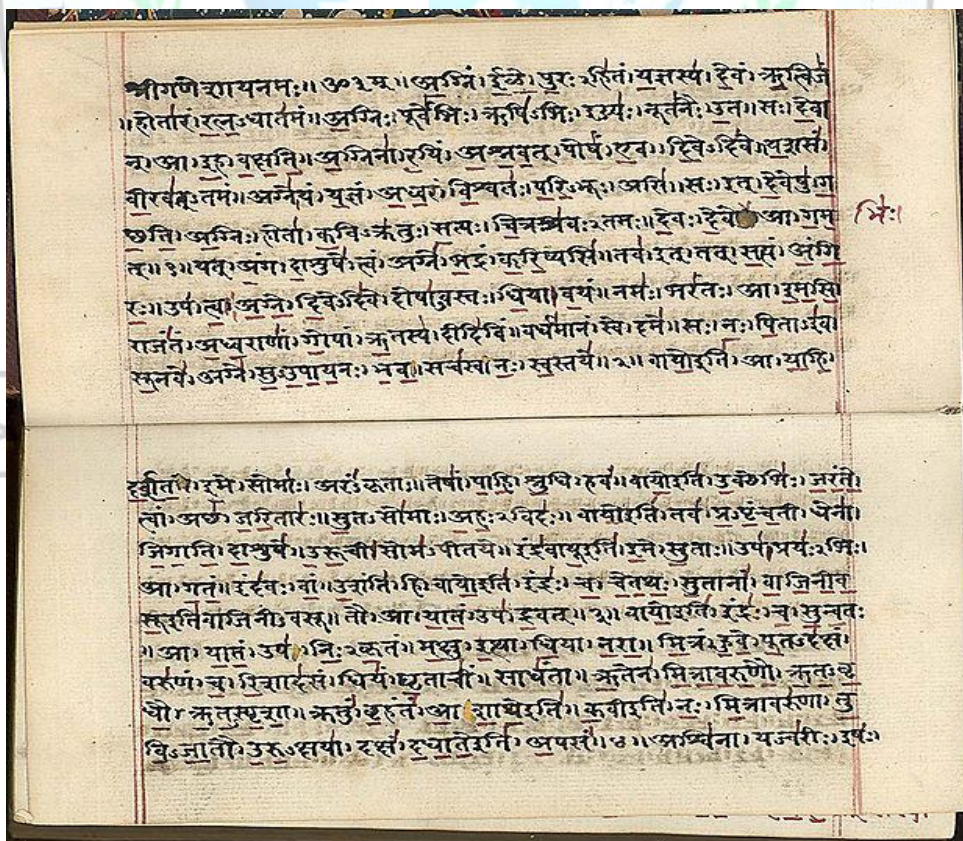 श्रीगणेशायनमः॥ ॐ३म्॥ अ॒ग्निं। ई॒ळे॒। पु॒रःऽहि॑तं। य॒ज्ञस्य॑। दे॒वं। ऋ॒त्विजं॑
॥ होता॑रं। र॒त्न॒ऽधात॑मं॥ अ॒ग्निः। पूर्वे॑भिः। ऋषि॑ऽभिः। ईड्यः॑। नूत॑नैः। उ॒त॥ सः। दे॒वा
न्। आ। इ॒ह। व॒क्ष॒ति॒॥ अ॒ग्निना॑। र॒यिं। अ॒श्न॒व॒त्। पोषं॑। ए॒व। दि॒वेऽदि॑वे॥ य॒शसं॑
वी॒रव॑त्ऽतमं॥ अग्ने॑। यं। य॒ज्ञं। अ॒ध्व॒रं। वि॒श्वतः॑। प॒रि॒ऽभूः। असि॑॥ सः। इत्। दे॒वेषु॑। ग॒
च्छ॒ति॒। अ॒ग्निः। होता॑। क॒विऽक्र॑तुः। स॒त्यः। चि॒त्रश्र॑वःऽतमः॥ दे॒वः। दे॒वे आ। ग॒म॒
भिः।
त्॥ १॥ यत्। अं॒ग। दा॒शुषे॑। त्वं। अग्ने॑। भ॒द्रं। क॒रि॒ष्यसि॑॥ तव॑। इत्। तत्। स॒त्यं। अं॒गि॒
रः॒॥ उप॑। त्वा॒। अ॒ग्ने॒। दि॒वेऽदि॑वे। दोषा॑ऽवस्तः। धि॒या। व॒यं॥ नमः॑। भरं॑तः। आ। इ॒म॒सि॒
राजं॑तं। अ॒ध्व॒राणां॑। गो॒पां। ऋ॒तस्य॑। दीदि॑विं॥ वर्ध॑मानं। स्वे। दमे॑॥ सः। नः॒। पि॒ताऽइ॑व।
सू॒नवे॑। अग्ने॑। सु॒ऽउ॒पा॒य॒नः। भ॒व॒॥ सच॑स्व। नः॒। स्व॒स्तये॑॥ २॥ वायो॒इति॑। आ। या॒हि॒।
द॒र्श॒त॒। इ॒मे। सोमाः॑। अरं॑ऽकृताः॥ तेषां॑। पा॒हि॒। श्रु॒धि। हवं॑॥ वायो॒इति॑। उ॒क्थेभिः॑। ज॒रं॒ते॒।
त्वां। अच्छ॑। ज॒रि॒तारः॑॥ सु॒तऽसो॑माः। अ॒हः॒ऽविदः॑॥ वायो॒इति॑। तव॑। प्र॒ऽपृं॒च॒ती। धेना॑।
जि॒गा॒ति॒। दा॒शुषे॑॥ उ॒रू॒ची। सोम॑ऽपीतये॥ इंद्र॑वायू॒इति॑। इ॒मे। सु॒ताः॥ उप॑। प्रयः॑ऽभिः।
आ। ग॒तं॒॥ इंद॑वः। वां॒। उ॒शंति॑। हि। वायो॒इति॑। इंद्रः॑। च॒। चे॒त॒थः॒। सु॒तानां॑। वा॒जि॒नी॒व॒
सू॒इति॑वाजिनीऽवसू॥ तौ। आ। या॒तं॒। उप॑। द्र॒वत्॥ ३॥ वायो॒इति॑। इंद्रः॑। च॒। सु॒न्व॒तः
॥ आ। या॒तं॒। उप॑। निः॒ऽकृ॒तं॥ म॒क्षु। इ॒त्था। धि॒या। न॒रा॒॥ मि॒त्रं। हु॒वे॒। पू॒तऽद॑क्षं।
वरु॑णं। च॒। रि॒शाद॑सं। धियं॑। घृ॒ताचीं॑। साधं॑ता॥ ऋ॒तेन॑। मि॒त्रा॒व॒रु॒णौ॒। ऋ॒त॒ऽवृ॒
धौ॒। ऋ॒त॒ऽस्पृ॒शा॒॥ क्रतुं॑। बृ॒हंतं॑। आ॒शा॒थे॒इति॑॥ क॒वी॒इति॑। नः॒। मि॒त्रावरु॑णा। तु॒
वि॒ऽजा॒तौ। उ॒रु॒ऽक्षया॑। दक्षं॑। द॒धा॒ते॒इति॑। अ॒पसं॑॥ ४॥ अश्वि॑ना। यज्व॑रीः। इषः॑।